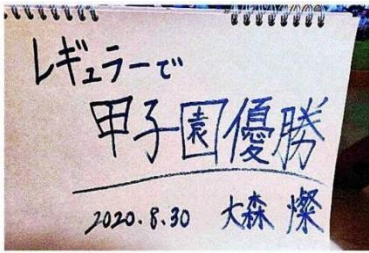 レギュラーで
甲子園優勝
2020.8.30 大森 燦